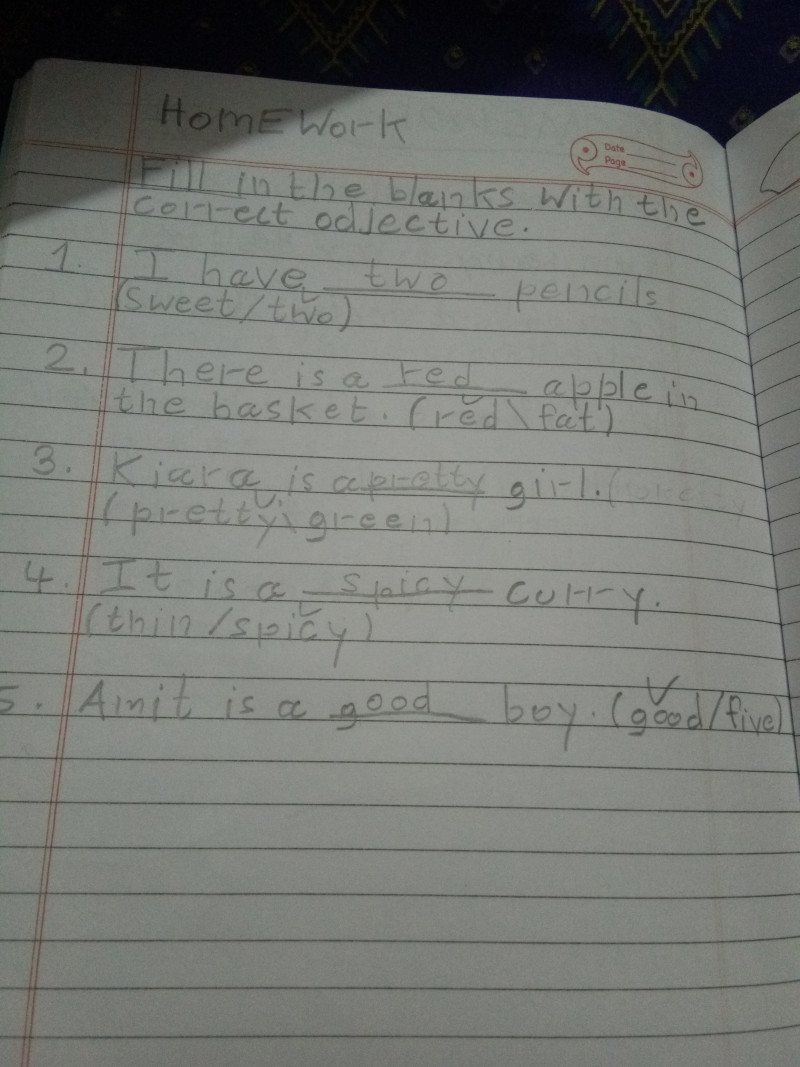 HomEWork
Date
Page
Fill in the blanks with the
correct odjective.
1. I have two pencils
(sweet/two)
2. There is a red apple in
the basket. (red\fat)
3. Kiara is a pretty girl.
(pretty\green)
4. It is a spicy curry.
(thin/spicy)
5. Amit is a good boy. (good/five)